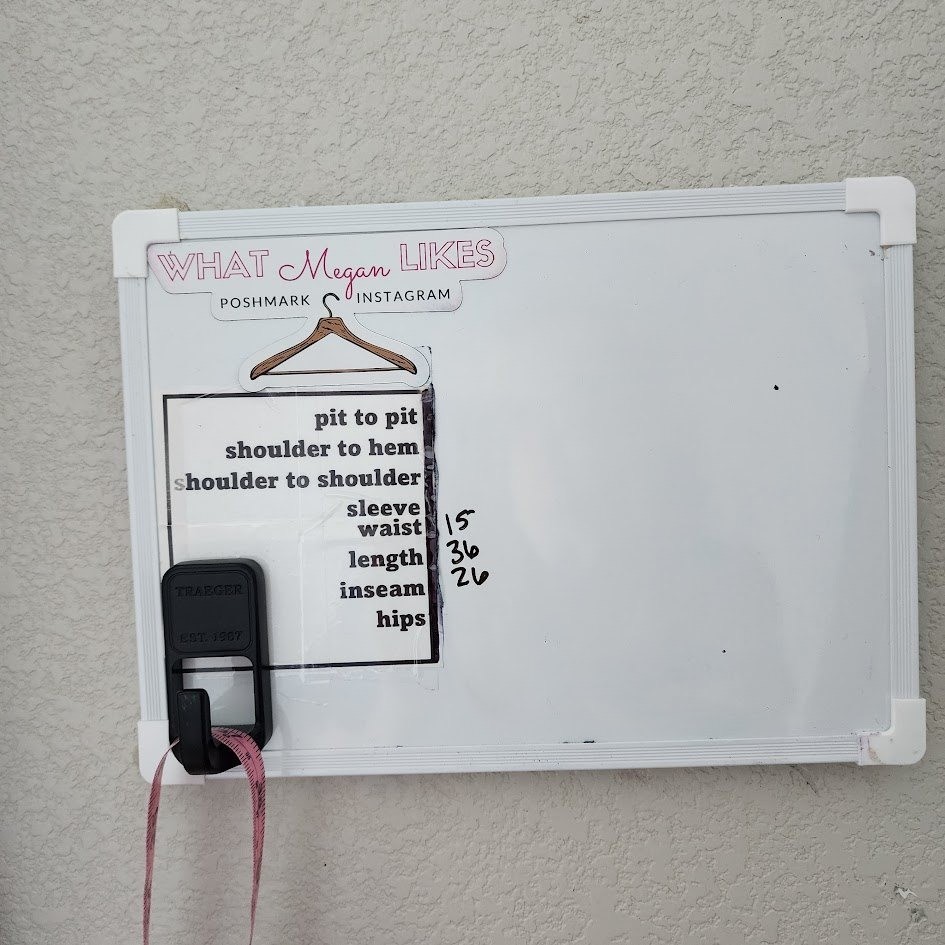 WHAT Megan LIKES
POSHMARK INSTAGRAM
pit to pit
shoulder to hem
shoulder to shoulder
sleeve
waist 15
length 36
inseam 26
hips
TRAEGER
EST. 1987